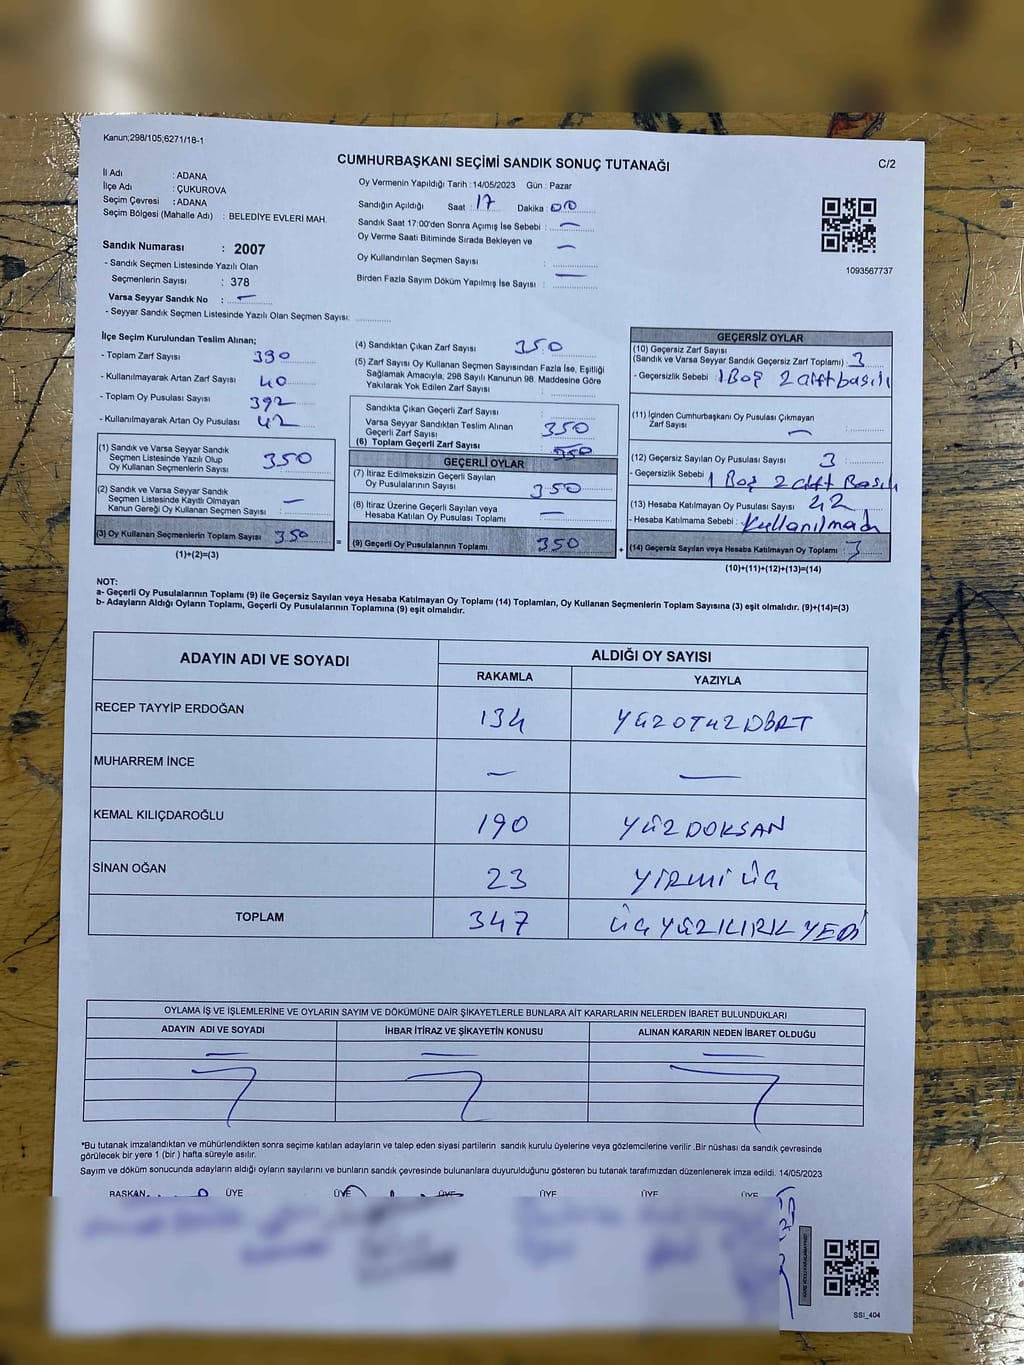 Kanun;298/105;6271/18-1
CUMHURBAŞKANI SEÇİMİ SANDIK SONUÇ TUTANAĞI
C/2
İl Adı : ADANA
İlçe Adı : ÇUKUROVA
Seçim Çevresi : ADANA
Seçim Bölgesi (Mahalle Adı) : BELEDİYE EVLERİ MAH.
Sandık Numarası : 2007
- Sandık Seçmen Listesinde Yazılı Olan
Seçmenlerin Sayısı : 378
Varsa Seyyar Sandık No : —
- Seyyar Sandık Seçmen Listesinde Yazılı Olan Seçmen Sayısı:
Oy Vermenin Yapıldığı Tarih : 14/05/2023 Gün : Pazar
Sandığın Açıldığı Saat : 17 Dakika : 00
Sandık Saat 17:00'den Sonra Açımış İse Sebebi : —
Oy Verme Saati Bitiminde Sırada Bekleyen ve —
Oy Kullandırılan Seçmen Sayısı :
Birden Fazla Sayım Döküm Yapılmış İse Sayısı : —
1093567737
İlçe Seçim Kurulundan Teslim Alınan;
- Toplam Zarf Sayısı : 390
- Kullanılmayarak Artan Zarf Sayısı : 40
- Toplam Oy Pusulası Sayısı : 392
- Kullanılmayarak Artan Oy Pusulası : 42
(1) Sandık ve Varsa Seyyar Sandık
Seçmen Listesinde Yazılı Olup
Oy Kullanan Seçmenlerin Sayısı : 350
(2) Sandık ve Varsa Seyyar Sandık
Seçmen Listesinde Kayıtlı Olmayan
Kanun Gereği Oy Kullanan Seçmen Sayısı : —
(3) Oy Kullanan Seçmenlerin Toplam Sayısı : 350
(1)+(2)=(3)
=
(4) Sandıktan Çıkan Zarf Sayısı : 350
(5) Zarf Sayısı Oy Kullanan Seçmen Sayısından Fazla İse, Eşitliği
Sağlamak Amacıyla, 298 Sayılı Kanunun 98. Maddesine Göre
Yakılarak Yok Edilen Zarf Sayısı :
Sandıkta Çıkan Geçerli Zarf Sayısı :
Varsa Seyyar Sandıktan Teslim Alınan
Geçerli Zarf Sayısı : 350
(6) Toplam Geçerli Zarf Sayısı : 350
GEÇERLİ OYLAR
(7) İtiraz Edilmeksizin Geçerli Sayılan
Oy Pusulalarının Sayısı : 350
(8) İtiraz Üzerine Geçerli Sayılan veya
Hesaba Katılan Oy Pusulası Toplamı : —
(9) Geçerli Oy Pusulalarının Toplamı : 350
+
GEÇERSİZ OYLAR
(10) Geçersiz Zarf Sayısı
(Sandık ve Varsa Seyyar Sandık Geçersiz Zarf Toplamı) : 3
- Geçersizlik Sebebi : 1 Boş 2 çift basılı
(11) İçinden Cumhurbaşkanı Oy Pusulası Çıkmayan
Zarf Sayısı : —
(12) Geçersiz Sayılan Oy Pusulası Sayısı : 3
- Geçersizlik Sebebi : 1 Boş 2 çift Basılı
(13) Hesaba Katılmayan Oy Pusulası Sayısı : 42
- Hesaba Katılmama Sebebi : Kullanılmadı
(14) Geçersiz Sayılan veya Hesaba Katılmayan Oy Toplamı : 3
(10)+(11)+(12)+(13)=(14)
NOT:
a- Geçerli Oy Pusulalarının Toplamı (9) ile Geçersiz Sayılan veya Hesaba Katılmayan Oy Toplamı (14) Toplamları, Oy Kullanan Seçmenlerin Toplam Sayısına (3) eşit olmalıdır. (9)+(14)=(3)
b- Adayların Aldığı Oyların Toplamı, Geçerli Oy Pusulalarının Toplamına (9) eşit olmalıdır.
ADAYIN ADI VE SOYADI
ALDIĞI OY SAYISI
RAKAMLA YAZIYLA
RECEP TAYYİP ERDOĞAN 134 YÜZOTUZDÖRT
MUHARREM İNCE — —
KEMAL KILIÇDAROĞLU 190 YÜZ DOKSAN
SİNAN OĞAN 23 YİRMİ ÜÇ
TOPLAM 347 ÜÇ YÜZKIRK YEDİ
OYLAMA İŞ VE İŞLEMLERİNE VE OYLARIN SAYIM VE DÖKÜMÜNE DAİR ŞİKAYETLERLE BUNLARA AİT KARARLARIN NELERDEN İBARET BULUNDUKLARI
ADAYIN ADI VE SOYADI İHBAR İTİRAZ VE ŞİKAYETİN KONUSU ALINAN KARARIN NEDEN İBARET OLDUĞU
— — —
*Bu tutanak imzalandıktan ve mühürlendikten sonra seçime katılan adayların ve talep eden siyasi partilerin sandık kurulu üyelerine veya gözlemcilerine verilir .Bir nüshası da sandık çevresinde
görülecek bir yere 1 (bir ) hafta süreyle asılır.
Sayım ve döküm sonucunda adayların aldığı oyların sayılarını ve bunların sandık çevresinde bulunanlara duyurulduğunu gösteren bu tutanak tarafımızdan düzenlenerek imza edildi. 14/05/2023
BAŞKAN ÜYE ÜYE ÜYE ÜYE ÜYE ÜYE
SSI_404